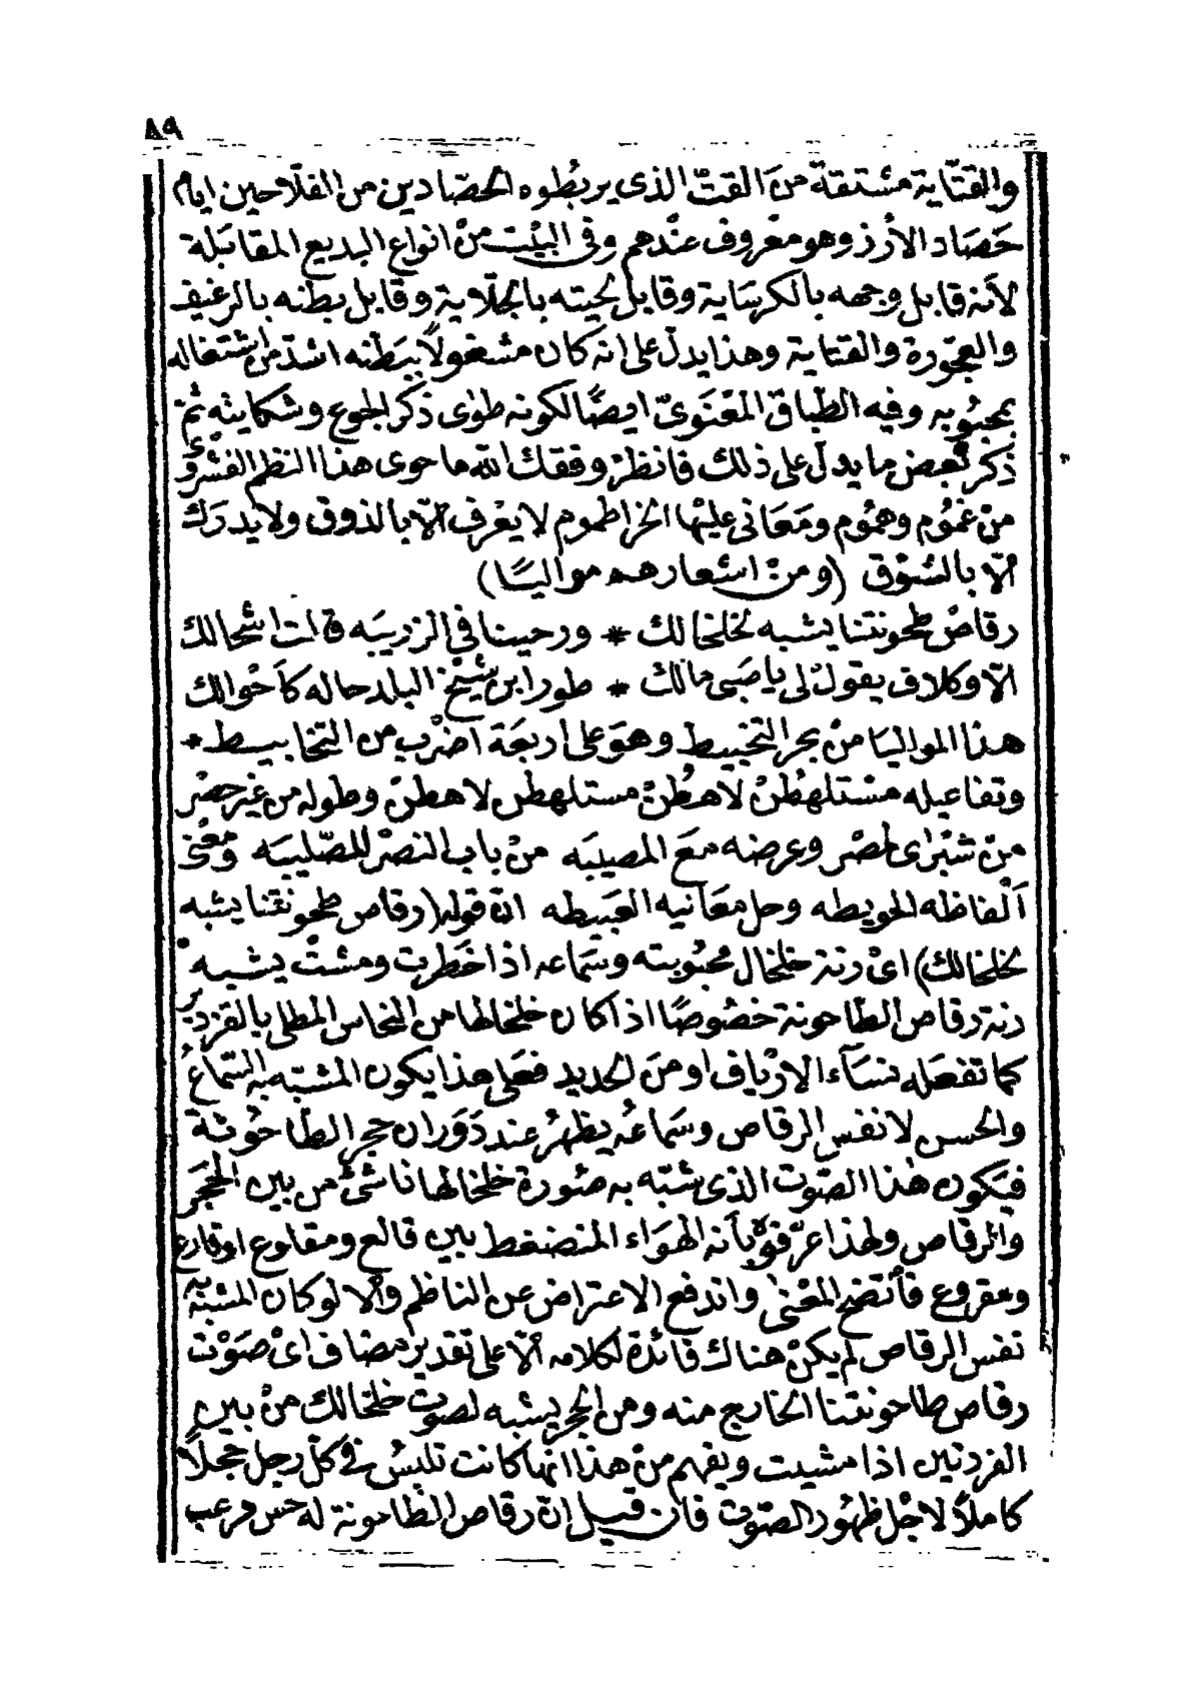 ٨٩
والقتّاية مشتقة منَ القتّ الذى يربُطوه الحصّادين من الفلّاحين ايام
حَصَاد الأرز وهو معْروف عنْدهم وفى البيْت منْ انواع البديع المقابَلة
لأنه قابل وجهه بالكرسَاية وقابل لحيته بالجلّاية وقابل بطنه بالرغيف
والعجّورة والقتاية وهذا يدلّ على انه كان مشغولاً ببَطْنه اشدّ من اشتغاله
بمحبُوبه وفيه الطّباق المعْنَوىّ ايضًا لكونه طوى ذكر الجوع وشكايته ثمّ
ذكر بعض ما يدلّ على ذلك فانظرْ وفقك الله ما حوى هذا النظم الفشْرَوى
منْ غمُوم وهمُوم ومَعَانى عليْها الخراطموم لا يعْرف الّا بالذوق ولا يدرَك
الّا بالسَّوْق (ومنْ اشعارهم مواليَا)
رقاصْ طحونتنا يشبه لخلخالك * ورحينا فى الزريبَه قالت اشحالك
الّا وكلاف يقولْ لى يا صَبى مالك * طور ابن شيْخ البلد حاله كاَحْوالك
هذا المواليَا منْ بحر التخبيط وهوَ على اربعَة اَضرْب من التخابيط *
وتفاعيله مسْتلهْطنْ لاهطنْ مستلهطن لاهطنْ وطوله من غير حصْر
منْ شبْراى لمصْر وعرضه معَ المصيبَه منْ باب النصرْ للصّليبَه ومعْنى
اَلْفاظه الحويطه وحل معَانيه العَبيطه انّ قوله (رقاص طحونتنا يشبه
لخلخالك) اىْ رنة خلخال محبُوبته وسَماعه اذا خَطرت ومشتْ يشبه
رنة رقاص الطّاحونة خصُوصًا اذا كان خلخالها من النحاس المطلى بالقزدير
كما تفعَله نسَآء الارْياف او منَ الحديد فعَلى هذا يكون المشبّه به السّماعُ
والحس لا نفس الرقاص وسَماعُه يظهرُ عند دَوَران حجر الطّاحونة
فيَكون هٰذا الصّوت الذى شبّه به صُورة خلخالها ناشئٌ من بين الحجَر
والرقاص ولهذا عرّفوهُ بأنه الهوَاء المنضغط بين قالع ومقلوع او قارع
ومقروع فاْتضح المعْنى واندفع الاعتراض عن الناظم واْلا لو كان المشبّه به
نفس الرقاص لم يكنْ هناك فائدة لكلامه الّا على تقدير مضاف اىْ صَوْت
رقاص طاحونتنا الخارج منه ومن الحجر يشبه لصوت خلخالك منْ بين
الفردتين اذا مشيت ويفهم منْ هذا انّها كانت تلبسُ فى كلّ رجل حجلاً
كاملاً لاجْل ظهُور الصّوت فان قيل انّ رقاص الطاحونة له حس مرعب